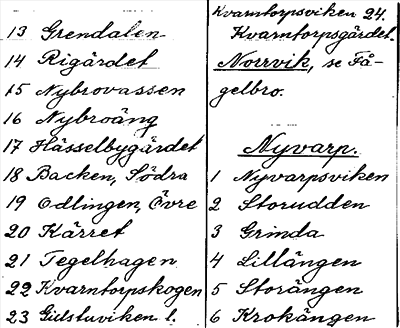 13 Grendalen
14 Rigärdet
15 Nybrovassen
16 Nybroäng
17 Hässelbygärdet
18 Backen, Södra
19 Edlingen, Övre
20 Kärret
21 Tegelhagen
22 Kvarntorpskogen
23 l.
Kvarntorpsviken 24.
Kvarntorpsgärdet.
Norrvik, se Få-
gelbro.
Nyvarp.
1 Nyvarpsviken
2 Storudden
3 Grinda
4 Lillängen
5 Storängen
6 Krokängen